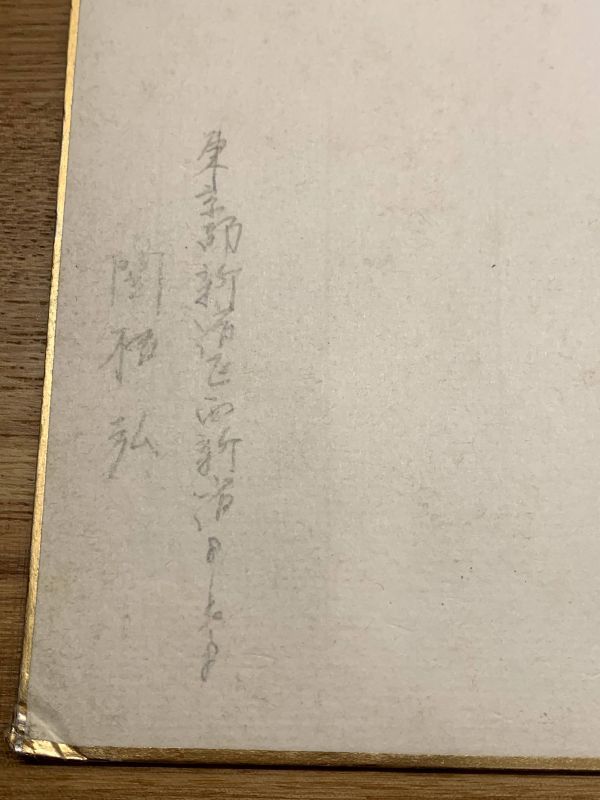 東京都新宿区西新宿
関根弘